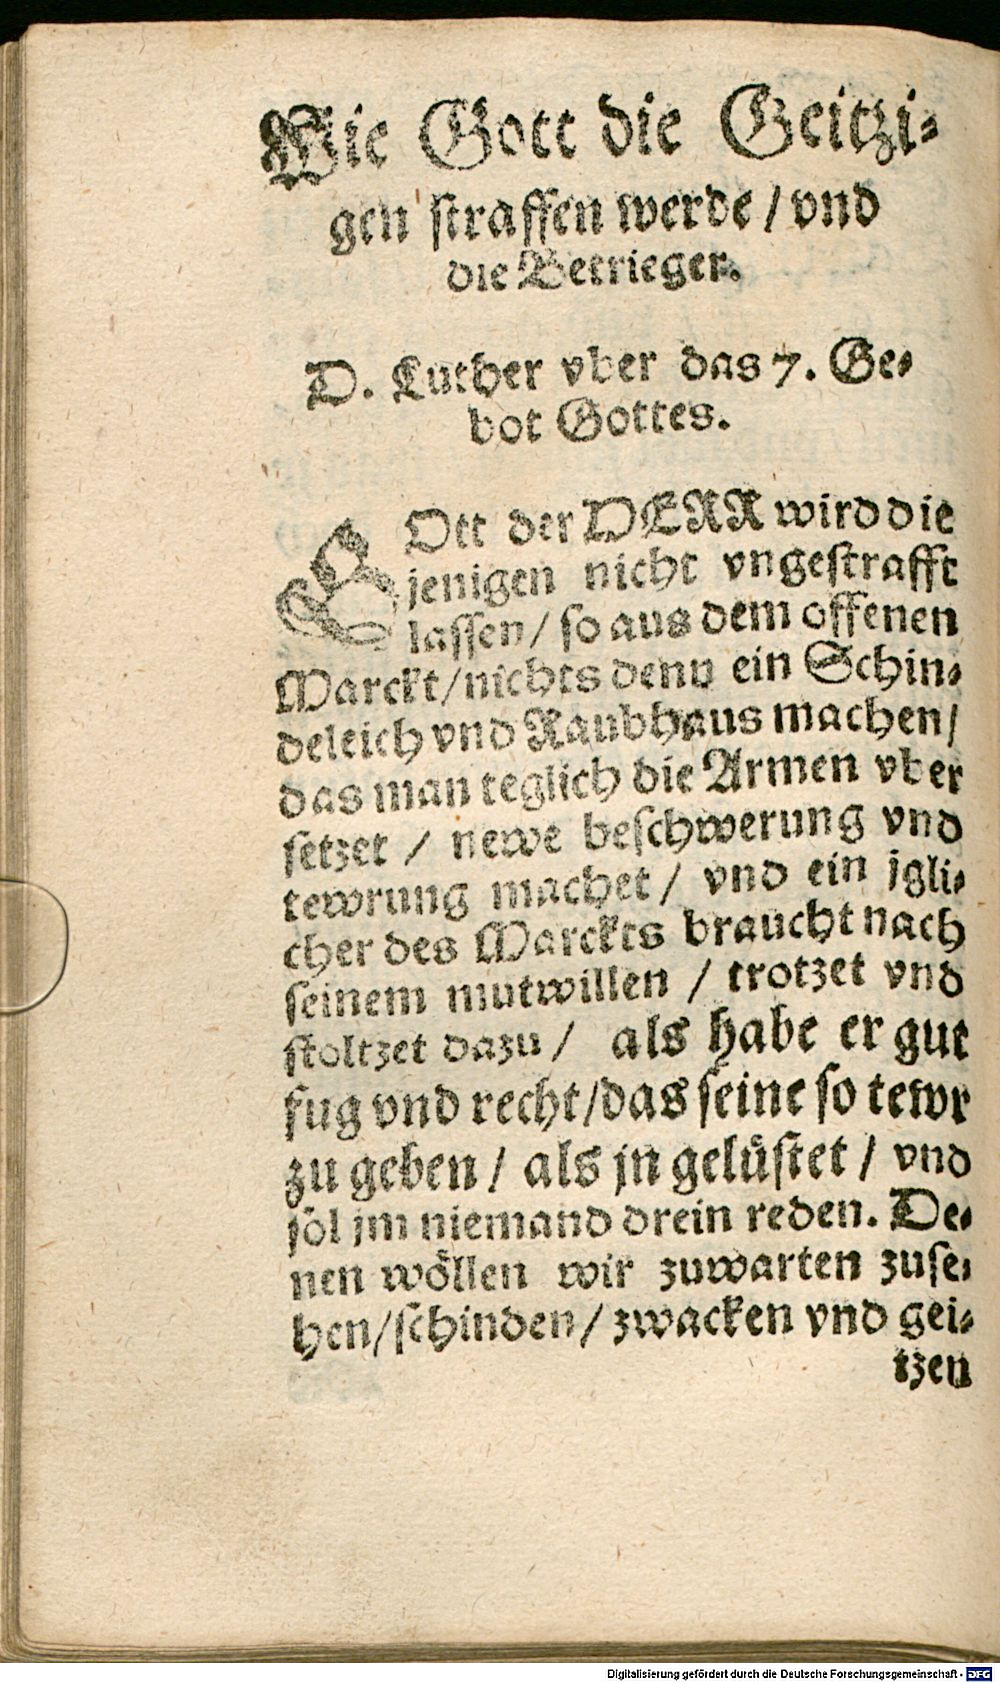 Wie Gott die Geitzi⸗
gen ſtraffen werde / vnd
die Betrieger.
D. Luther vber das 7. Ge⸗
bot Gottes.
GOtt der HERR wird die
jenigen nicht vngeſtrafft
laſſen / ſo aus dem offenen
Marckt / nichts denn ein Schin⸗
deleich vnd Raubhaus machen /
das man teglich die Armen vber
ſetzet / newe beſchwerung vnd
tewrung machet / vnd ein jgli⸗
cher des Marckts braucht nach
ſeinem mutwillen / trotzet vnd
ſtoltzet dazu / als habe er gut
fug vnd recht / das ſeine ſo tewr
zu geben / als jn gelüſtet / vnd
ſol jm niemand drein reden. De⸗
nen wöllen wir zuwarten zuſe⸗
hen / ſchinden / zwacken vnd gei⸗
tzen
Digitalisierung gefördert durch die Deutsche Forschungsgemeinschaft - DFG